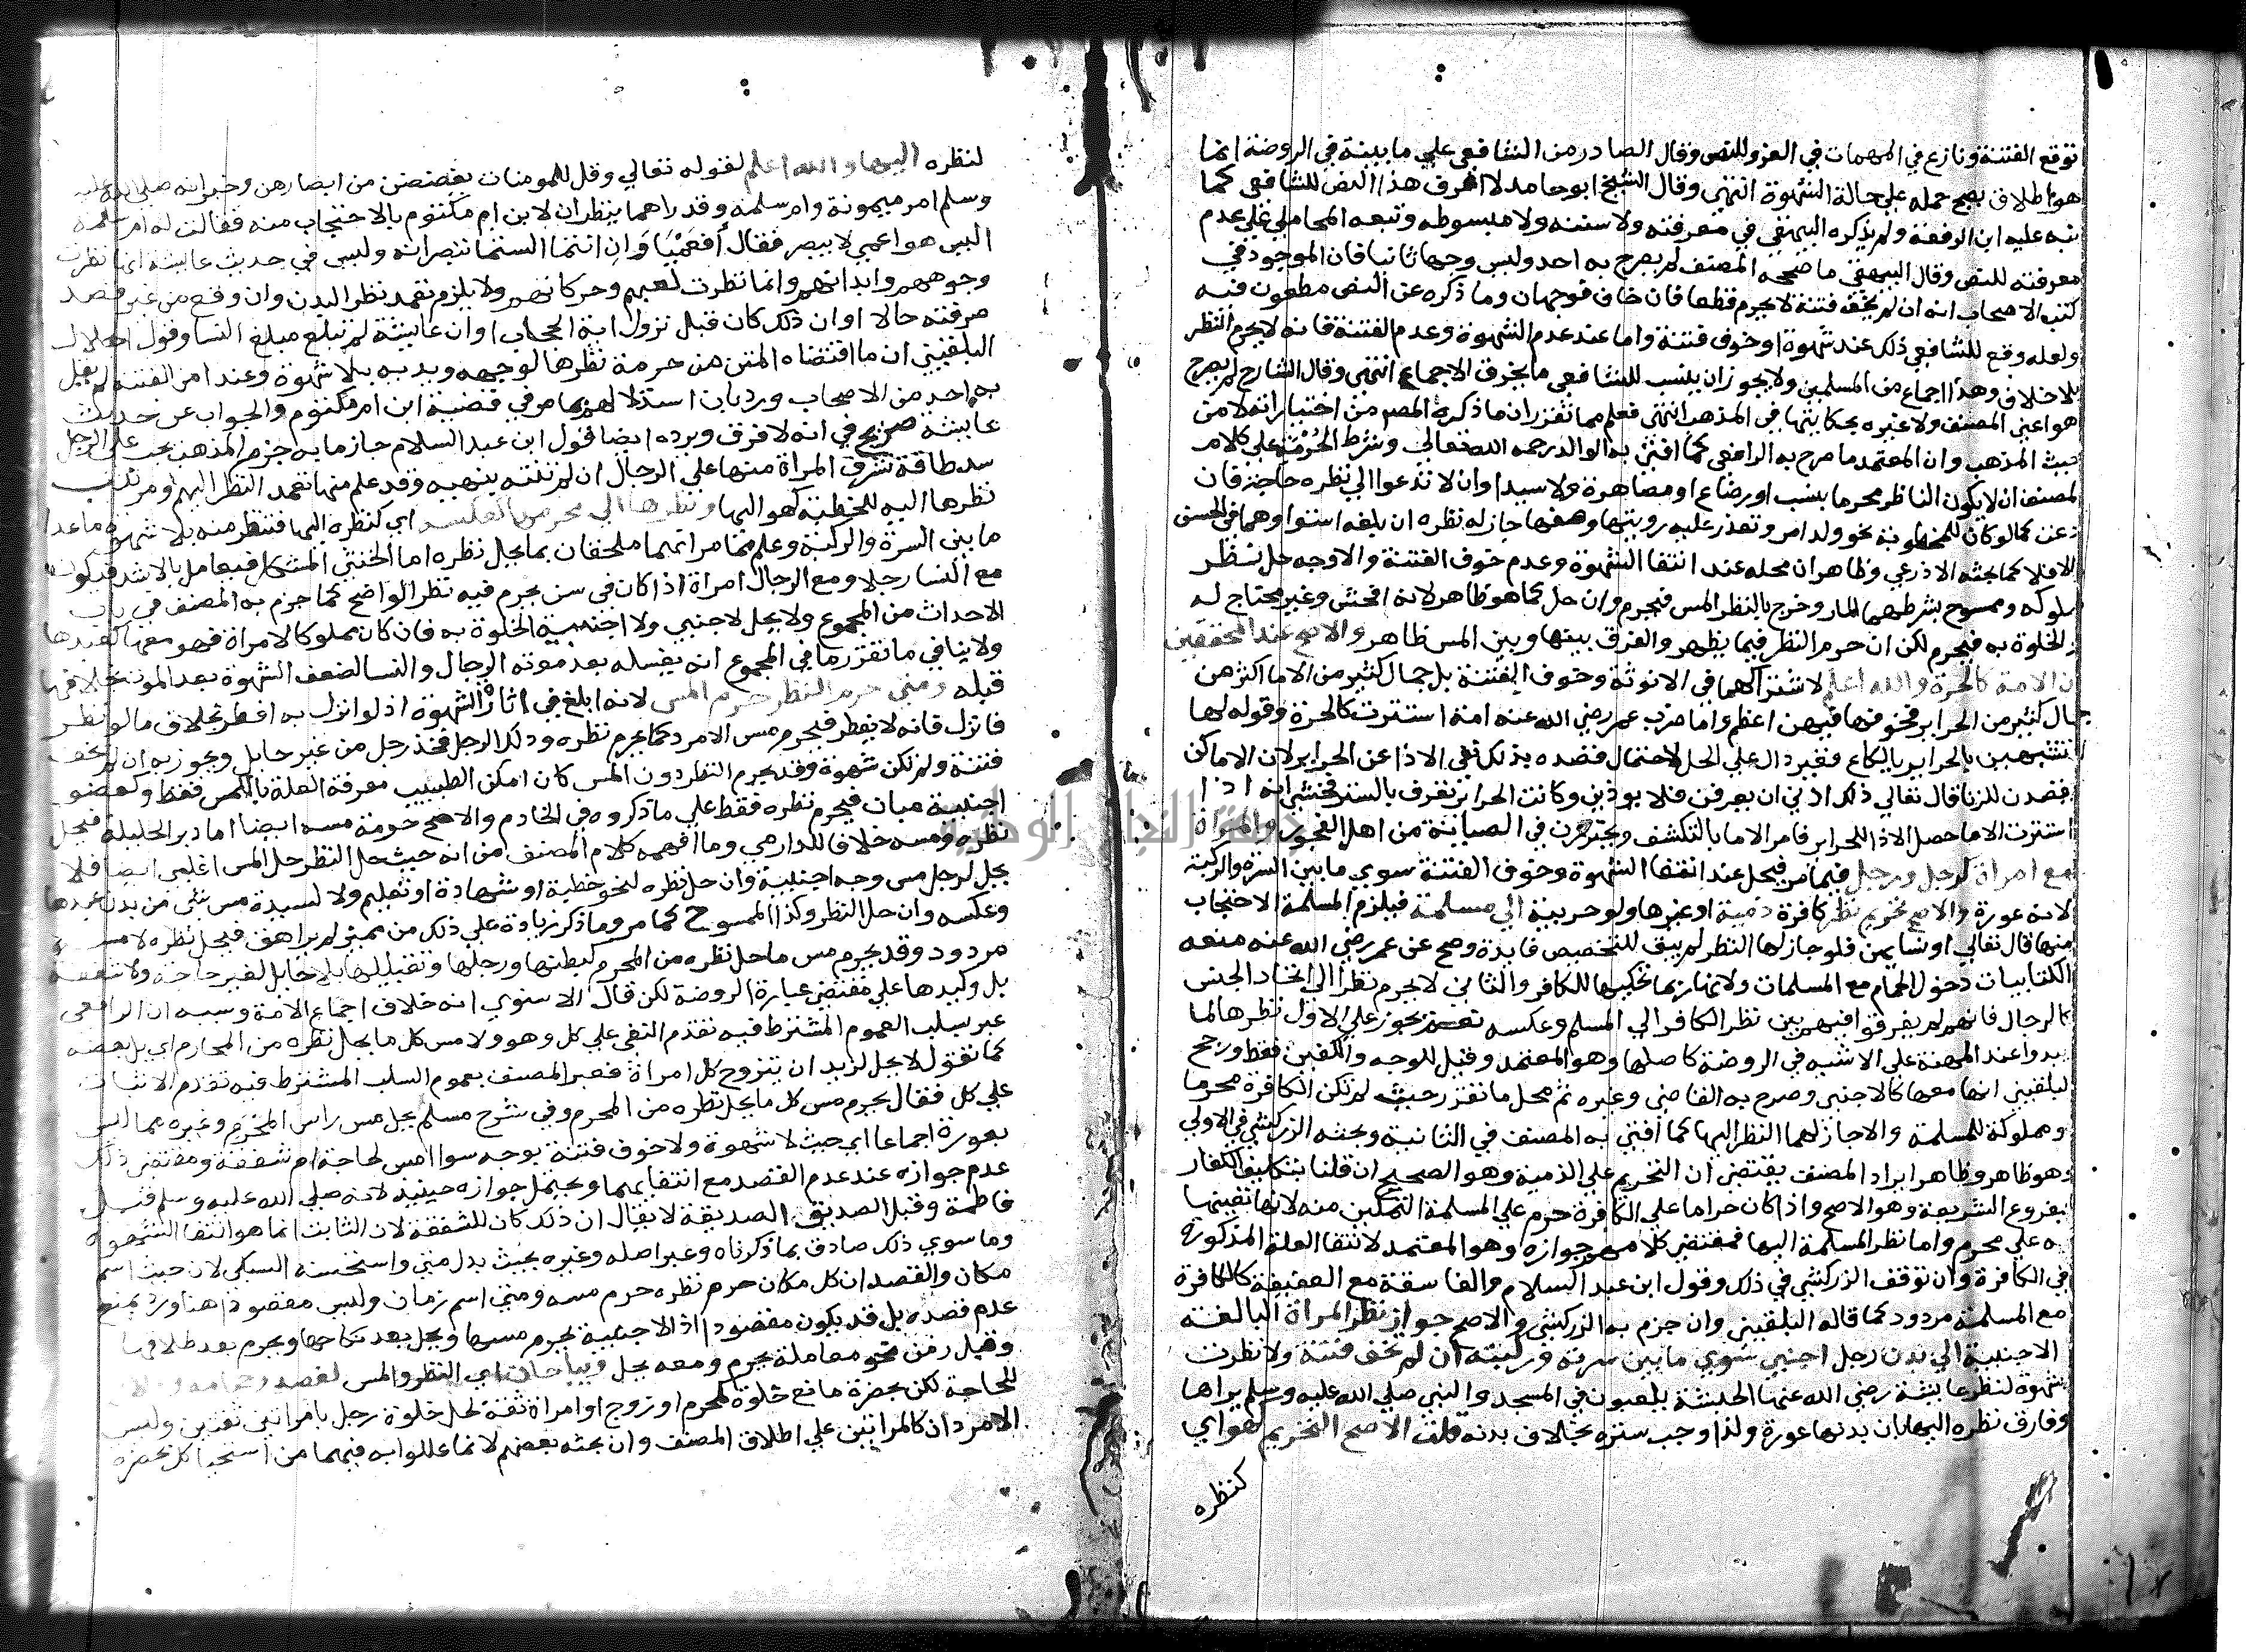 توقع الفتنة ونازع في المهمات في العزو للنص وقال الصادر من الشافعي علي ما بينه في الروضة انما
هو اطلاق يصح حمله علي حالة الشهوة انتهي وقال الشيخ ابو حامد لا اعرف هذا النص للشافعي كما
نبه عليه ابن الرفعة ولم يذكره البيهقي في معرفته ولا سننه ولا مبسوطه وتبعه المحاملي علي عدم
معرفته للنص وقال البيهقي ما صححه المصنف لم يصرح به احد وليس وجها ثابتا فان الموجود في
كتب الاصحاب انه ان لم يخف فتنة لا يحرم قطعا فان خاف فوجهان وما ذكره عن النص مطعون فيه
ولعله وقع للشافعي ذلك عند شهوة او خوف فتنة واما عند عدم الشهوة وعدم الفتنة فانه لا يحرم النظر
بلا خلاف وهذا اجماع من المسلمين ولا يجوز ان ينسب للشافعي ما يخرق الاجماع انتهي وقال الشارح لم يصرح
هو اعني المصنف ولا غيره بحكايتها في المذهب انتهي فعلم مما تقرر ان ما ذكره المص من اختياراته لا من
حيث المذهب وان المعتمد ما صرح به الرافعي كما افتي به الوالد رحمه الله تعالي وشرط الحرمة علي كلام
المصنف ان لا يكون الناظر محرما بنسب او رضاع او مصاهرة ولا سيدا وان لا تدعوا الي نظره حاجة فان
دعت كما لو كان للمخطوبة نحو ولد امرد وتعذر عليه رويتها وصفها جاز له نظره ان بلغه استواوهما في الحسن
والا فلا كما بحثه الاذرعي وظاهر ان محله عند انتفا الشهوة وعدم خوف الفتنة والاوجه حل نظر
مملوكه وممسوح بشرطهما المار وخرج بالنظر المس فيحرم وان حل كما هو ظاهر لانه افحش وغير محتاج له
والخلوة به فيحرم لكن ان حرم النظر فيما يظهر والفرق بينها وبين المس ظاهر والاصح عند المحققين
ان الامة كالحرة والله اعلم لاشتراكهما في الانوثة وخوف الفتنة بل جمال كثير من الاما اكثر من
جمال كثير من الحراير فخوفها فيهن اعظم واما ضرب عمر رضي الله عنه امة استترت كالحرة وقوله لها
اتتشبهين بالحراير يالكاع فغير دال علي الحل لاحتمال قصده بذلك نفي الاذا عن الحراير لان الاما كن
يقصدن للزنا قال تعالي ذلك ادني ان يعرفن فلا يوذين وكانت الحراير تعرف بالستر فخشي انه اذا
استترت الاما حصل الاذا للحراير فامر الاما بالتكشف ويحترزن في الصيانة من اهل الفجور والمراة
مع امراة كرجل ورجل فيما مر فيحل عند انتفا الشهوة وخوف الفتنة سوي ما بين السرة والركبة
لانه عورة والاصح تحريم نظر كافرة ذمية او غيرها ولو حربية الي مسلمة فيلزم المسلمة الاحتجاب
منها قال تعالي او نسايهن فلو جاز لها النظر لم يبق للتخصيص فايدة وصح عن عمر رضي الله عنه منعه
الكتابيات دخول الحمام مع المسلمات ولانها ربما تحكيها للكافر والثاني لا يحرم نظرا الي اتحاد الجنس
كالرجال فانهم لم يفرقوا فيهم بين نظر الكافر الي المسلم وعكسه نعم يجوز علي الاول نظرها لما
يبدوا عند المهنة علي الاشبه في الروضة كاصلها وهو المعتمد وقيل للوجه والكفين فقط ورجح
البلقيني انها معها كالاجنبي وصرح به القاضي وغيره ثم محل ما تقرر حيث لم تكن الكافرة محرما
ومملوكة للمسلمة والا جاز لهما النظر اليها كما افتي به المصنف في الثانية وبحثه الزركشي في الاولي
وهو ظاهر وظاهر ايراد المصنف يقتضي ان التحريم علي الذمية وهو الصحيح ان قلنا بتكليف الكفار
بفروع الشريعة وهو الاصح واذا كان حراما علي الكافرة حرم علي المسلمة التمكين منه لانها تعينها
به علي محرم واما نظر المسلمة اليها فمقتضي كلامهم جوازه وهو المعتمد لانتفا العلة المذكورة
في الكافرة وان توقف الزركشي في ذلك وقول ابن عبد السلام والفاسقة مع العفيفة كالكافرة
مع المسلمة مردود كما قاله البلقيني وان جزم به الزركشي والاصح جواز نظر المراة البالغة
الاجنبية الي بدن رجل اجنبي سوي ما بين سرته وركبته ان لم تخف فتنة ولا نظرت
بشهوة لنظر عايشة رضي الله عنها الحبشة يلعبون في المسجد والنبي صلي الله عليه وسلم يراها
وفارق نظره اليها بان بدنها عورة ولذا وجب ستره بخلاف بدنه قلت الاصح التحريم كهو اي
كنظره
لنظره اليها والله اعلم لقوله تعالي وقل للمومنات يغضضن من ابصارهن وخبر انه صلي الله عليه
وسلم امر ميمونة وام سلمة وقد راهما ينظران لابن ام مكتوم بالاحتجاب منه فقالت له ام سلمة
اليس هو اعمي لا يبصر فقال أفعمياوان انتما الستما تبصرانه وليس في حديث عايشة انها نظرت
وجوههم وابدانهم وانما نظرت لعبهم وحركاتهم ولا يلزم تعمد نظر البدن وان وقع من غير قصد
صرفته حالا او ان ذلك كان قبل نزول اية الحجاب او ان عايشة لم تبلغ مبلغ النسا وقول الجلال
البلقيني ان ما اقتضاه المتن من حرمة نظرها لوجهه ويديه بلا شهوة وعند امن الفتنة لم يقل
به احد من الاصحاب ورد بان استدلالهم بما مر في قضية ابن ام مكتوم والجواب عن حديث
عايشة صريح في انه لا فرق ويرده ايضا قول ابن عبد السلام جازما به جزم المذهب يجب علي الرجل
سد طاقة تشرف المراة منها علي الرجال ان لم تنته بنهيه وقد علم منها تعمد النظر اليهم ومر ندب
نظرها اليه للخطبة كهو اليها ونظرها الي محرمها كعكسه اي كنظره اليها فتنظر منه بلا شهوة ما عدا
ما بين السرة والركبة وعلم مما مر انهما ملحقان بما يحل نظره اما الخنثي المشكل فيعامل بالاشد فيكون
مع النسا رجلا ومع الرجال امراة اذا كان في سن يحرم فيه نظر الواضح كما جزم به المصنف في باب
الاحداث من المجموع ولا يحل لاجنبي ولا اجنبية الخلوة به فان كان مملوكا لامراة فهو معها كعبدها
ولا ينافي ما تقرر ما في المجموع انه يغسله بعد موته الرجال والنسا لضعف الشهوة بعد الموت بخلافها
قبله ومتي حرم النظر حرم المس لانه ابلغ في اثارة الشهوة اذ لو انزل به افطر بخلاف ما لو نظر
فانزل فانه لا يفطر فيحرم مس الامرد كما يحرم نظره ودلك الرجل فخذ رجل من غير حايل ويجوز به ان لم يخف
فتنة ولم تكن شهوة وقد يحرم النظر دون المس كان امكن الطبيب معرفة العلة بالمس فقط وكعضو
اجنبية مبان فيحرم نظره فقط علي ما ذكروه في الخادم والاصح حرمة مسه ايضا اما دبر الحليلة فيحل
نظره ومسه خلافا للدارمي وما افهمه كلام المصنف من انه حيث حل النظر حل المس اغلبي ايضا فلا
يحل لرجل مس وجه اجنبية وان حل نظره لنحو خطبة او شهادة او تعليم ولا لسيدة مس شي من بدن عبدها
وعكسه وان حل النظر وكذا الممسوح كما مر وما ذكر زيادة علي ذلك من مميز لم يراهق فيحل نظره لا مسه
مردود وقد يحرم مس ما حل نظره من المحرم كبطنها ورجلها وتقبيلها بلا حايل لغير حاجة ولا شفقة
بل وكيدها علي مقتضي عبارة الروضة لكن قال الاسنوي انه خلاف اجماع الامة وسببه ان الرافعي
عبر بسلب العموم المشترط فيه تقدم النفي علي كل وهو ولا مس كل ما يحل نظره من المحارم اي بل بعضه
كما تقول لا يحل لزيد ان يتزوج كل امراة فعبر المصنف بعموم السلب المشترط فيه تقدم الاثبات
علي كل فقال يحرم مس كل ما يحل نظره من المحرم وفي شرح مسلم يحل مس راس المحرم وغيره مما ليس
بعورة اجماعا اي حيث لا شهوة ولا خوف فتنة بوجه سوا امس لحاجة ام شفقة ومقتضي ذلك
عدم جوازه عند عدم القصد مع انتفايهما ويحتمل جوازه حينيذ لانه صلي الله عليه وسلم قبل
فاطمة وقبل الصديق الصديقة لا يقال ان ذلك كان للشفقة لان الثابت انما هو انتفا الشهوة
وما سوي ذلك صادق بما ذكرناه وعبر اصله وغيره بحيث بدل متي واستحسنه السبكي لان حيث اسم
مكان والقصد ان كل مكان حرم نظره حرم مسه ومتي اسم زمان وليس مقصودا هنا ورد بمنع
عدم قصده بل قد يكون مقصودا اذ الاجنبية يحرم مسها ويحل بعد نكاحها ويحرم بعد طلاقها
وقبل زمن نحو معاملة يحرم ومعه يحل ويباحان اي النظر والمس لفصد وحجامة وعلاج
للحاجة لكن بحضرة مانع خلوة كمحرم او زوج او امراة ثقة لحل خلوة رجل بامراتين ثقتين وليس
الامردان كالمراتين علي اطلاق المصنف وان بحثه بعضهم لانما عللوا به فيهما من استحيا كل بحضرة